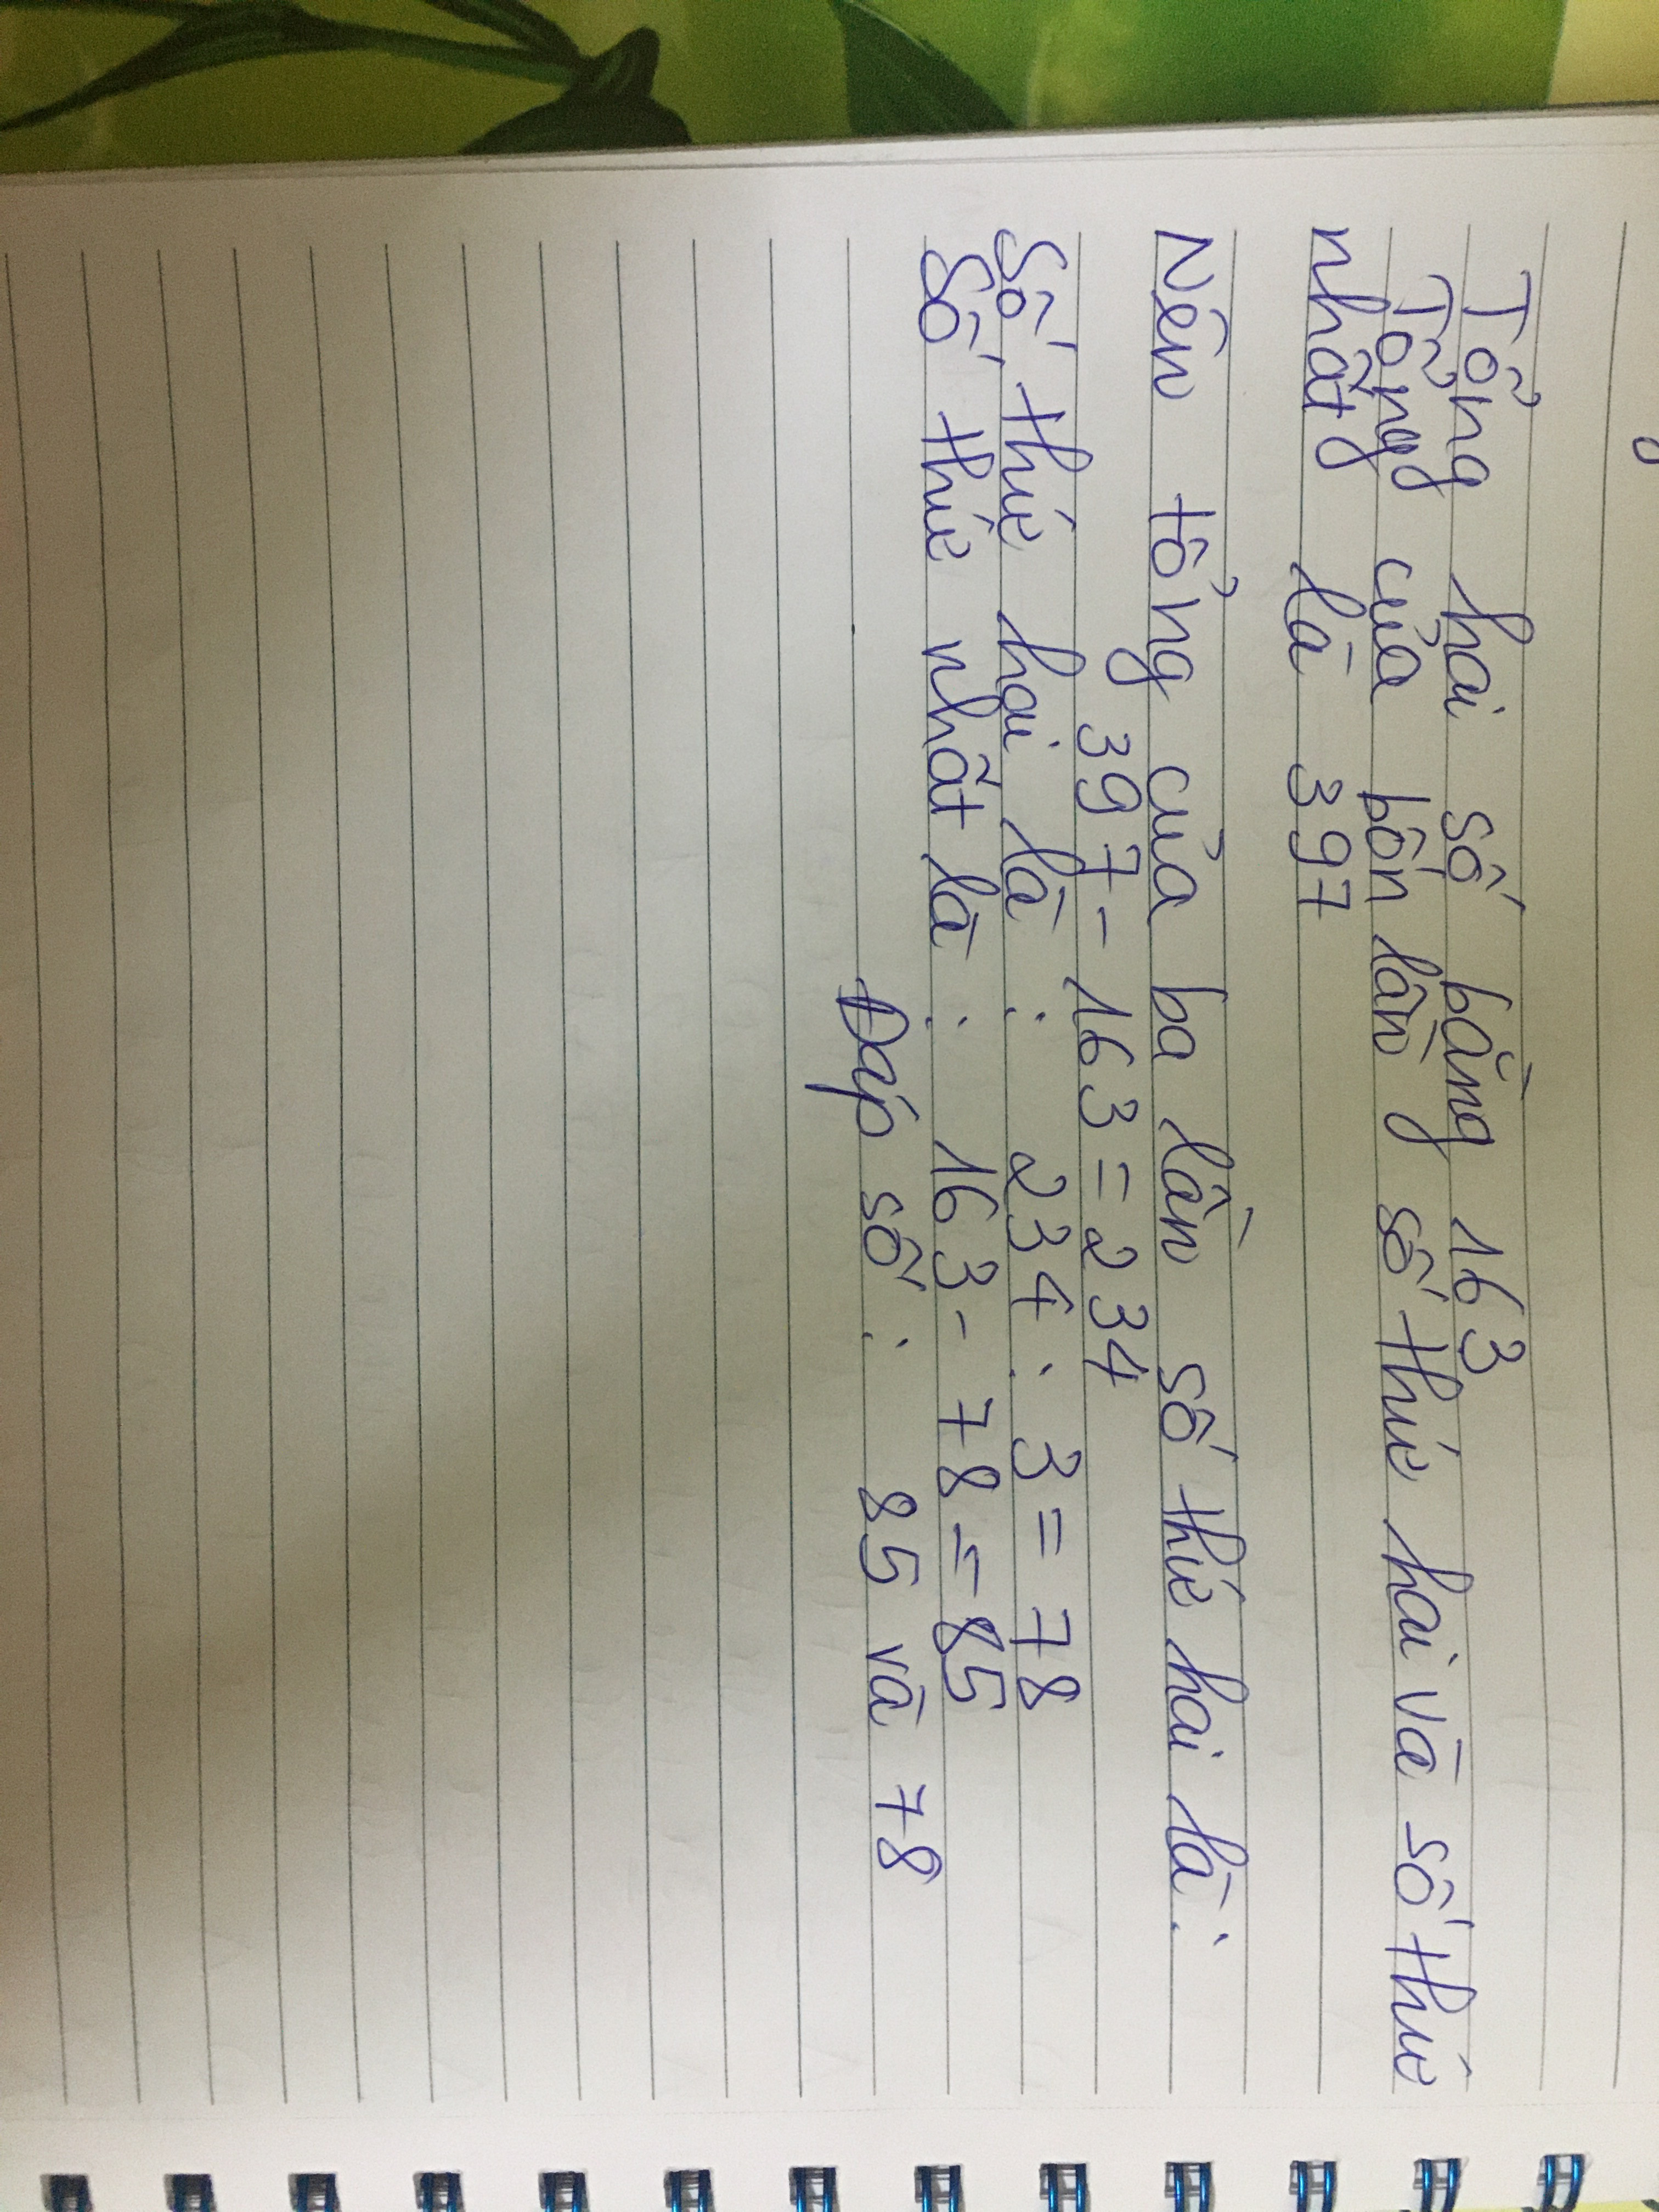 Tổng hai số bằng 163
Tổng của bốn lần số thứ hai và số thứ
nhất là 397
Nên tổng của ba lần số thứ hai là:
397 - 163 = 234
Số thứ hai là : 234 : 3 = 78
Số thứ nhất là : 163 - 78 = 85
Đáp số : 85 và 78